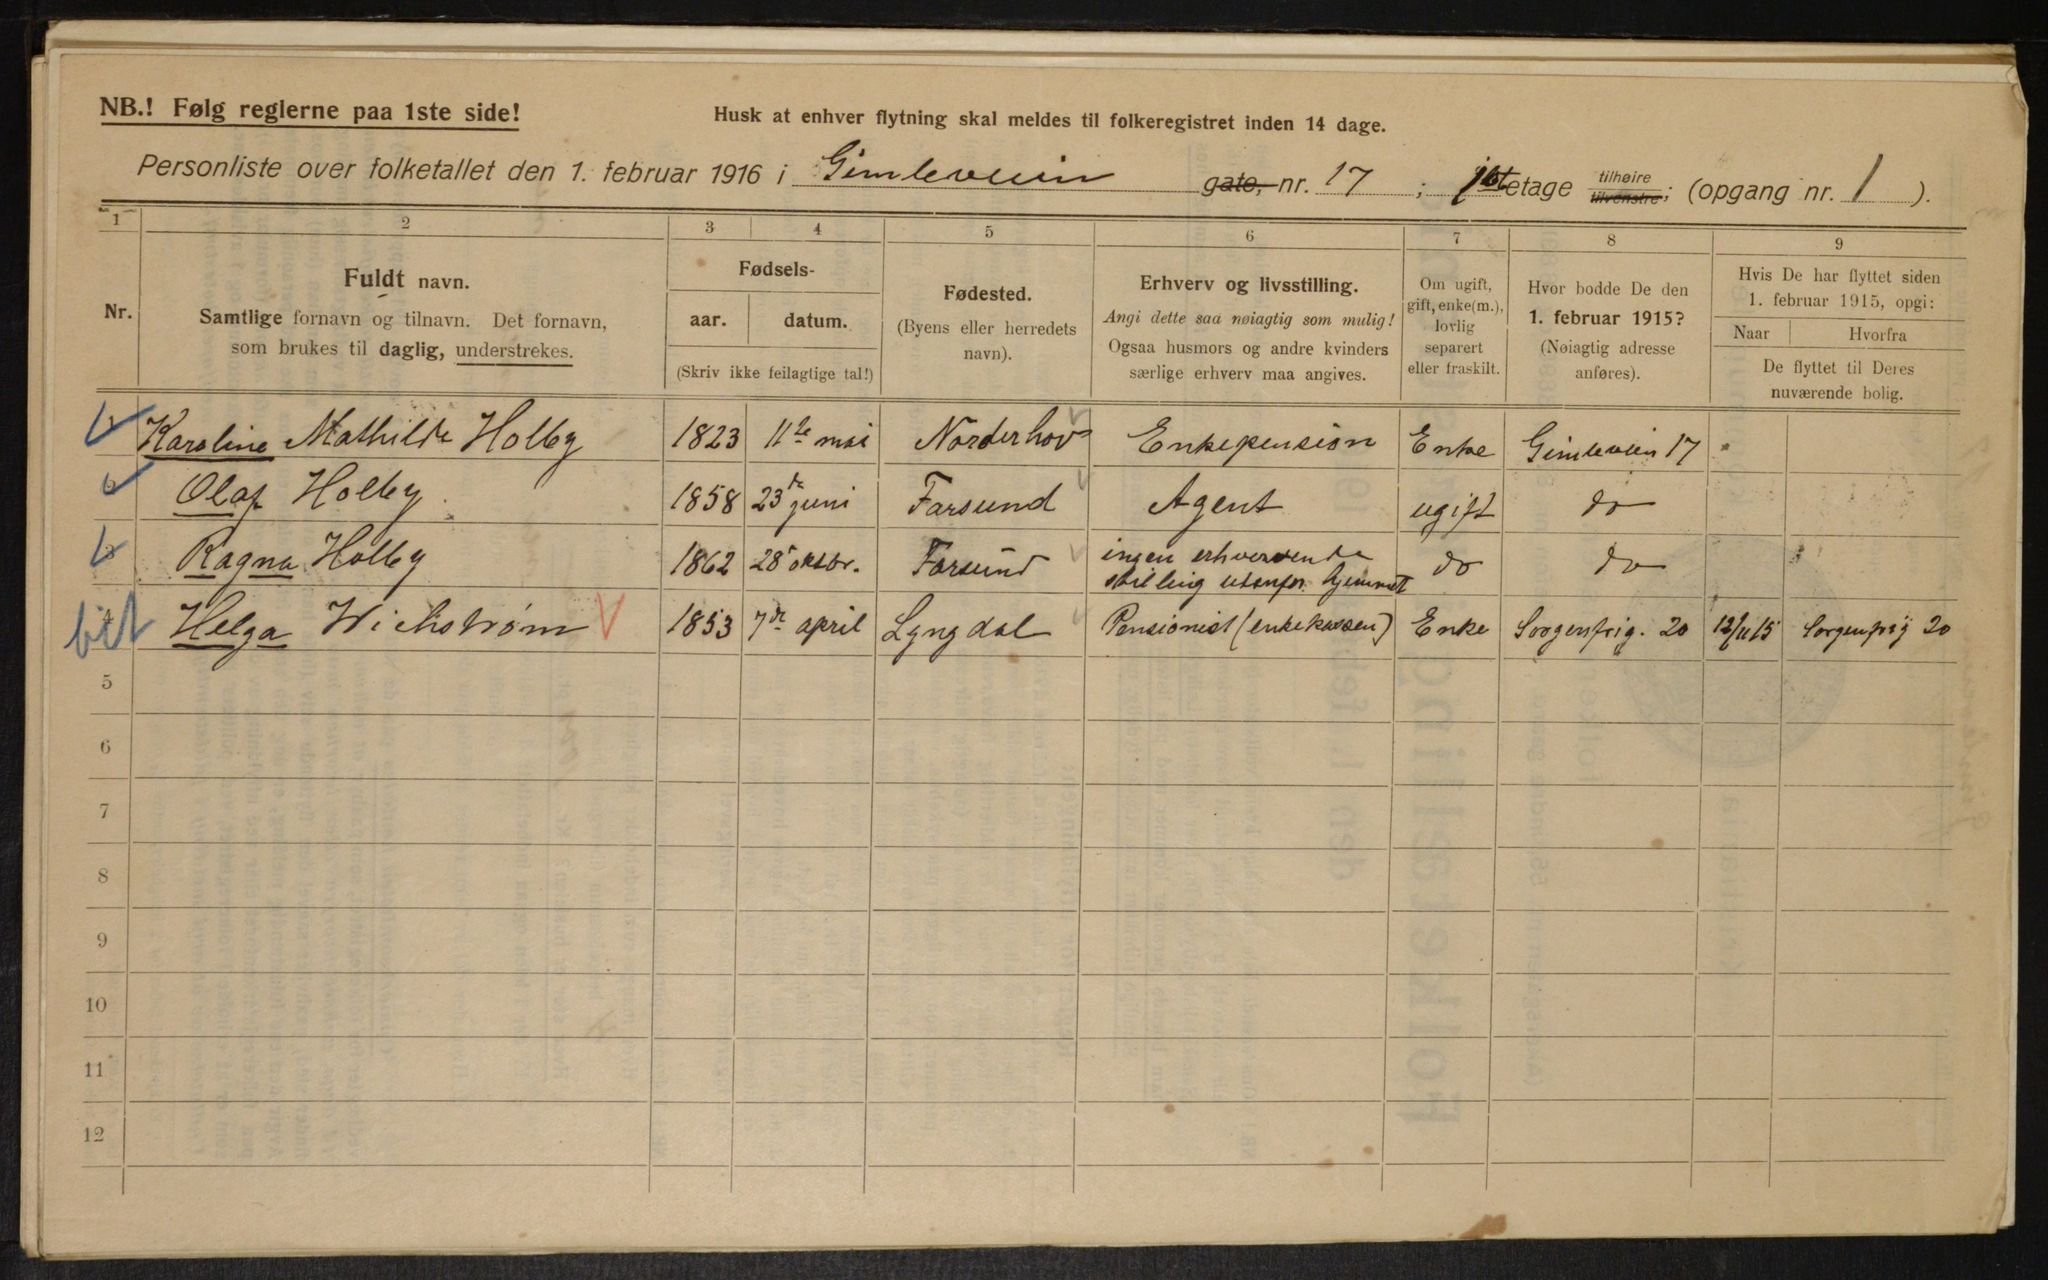 NB.! Følg reglerne paa 1ste side!
Husk at enhver flytning skal meldes til folkeregistret inden 14 dage.
Personliste over folketallet den 1. februar 1916 i Gimleveien gate, nr. 17 ; 1ste etage tilhøire tilvenstre; (opgang nr. 1 ).
1 2 3 4 5 6 7 8 9
Nr.
Fuldt navn.
Samtlige fornavn og tilnavn. Det fornavn,
som brukes til daglig, understrekes.
Fødsels-
aar. datum.
(Skriv ikke feilagtige tal!)
Fødested.
(Byens eller herredets
navn).
Erhverv og livsstilling.
Angi dette saa nøiagtig som mulig!
Ogsaa husmors og andre kvinders
særlige erhverv maa angives.
Om ugift,
gift, enke(m.),
lovlig
separert
eller fraskilt.
Hvor bodde De den
1. februar 1915?
(Nøiagtig adresse
anføres).
Hvis De har flyttet siden
1. februar 1915, opgi:
Naar Hvorfra
De flyttet til Deres
nuværende bolig.
1 Karoline Mathilde Holby 1823 11te mai Norderhov Enkepension Enke Gimleveien 17
2 Olaf Holby 1858 23de juni Farsund Agent ugift do
3 Ragna Holby 1862 28 oktbr. Farsund ingen erhvervende do do
stilling utenfor hjemmet
bit Helga Wichstrøm 1853 7de april Lyngdal Pensionist (enkekassen) Enke Sorgenfrig. 20 12/11 15 Sorgenfrig 20
5
6
7
8
9
10
11
12